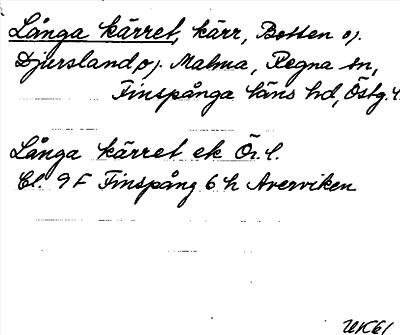 Långa kärret, kärr, Botten o.
Djursland o. Malma, Regna sn,
Finspånga läns hd, Östg. l.
Långa kärret ek Ö. l.
Bl. 9F Finspång 6 h Averviken